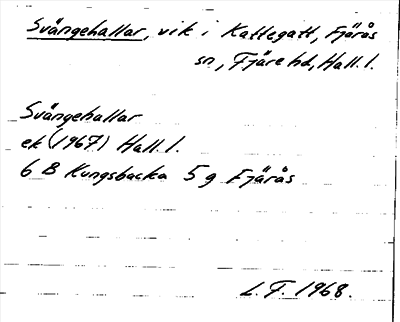 Svångehallar, vik i Kattegatt, Fjärås
sn, Fjäre hd, Hall. l.
Svångehallar
ek (1967) Hall. l.
6 B Kungsbacka 5 g Fjärås
L. F. 1968.